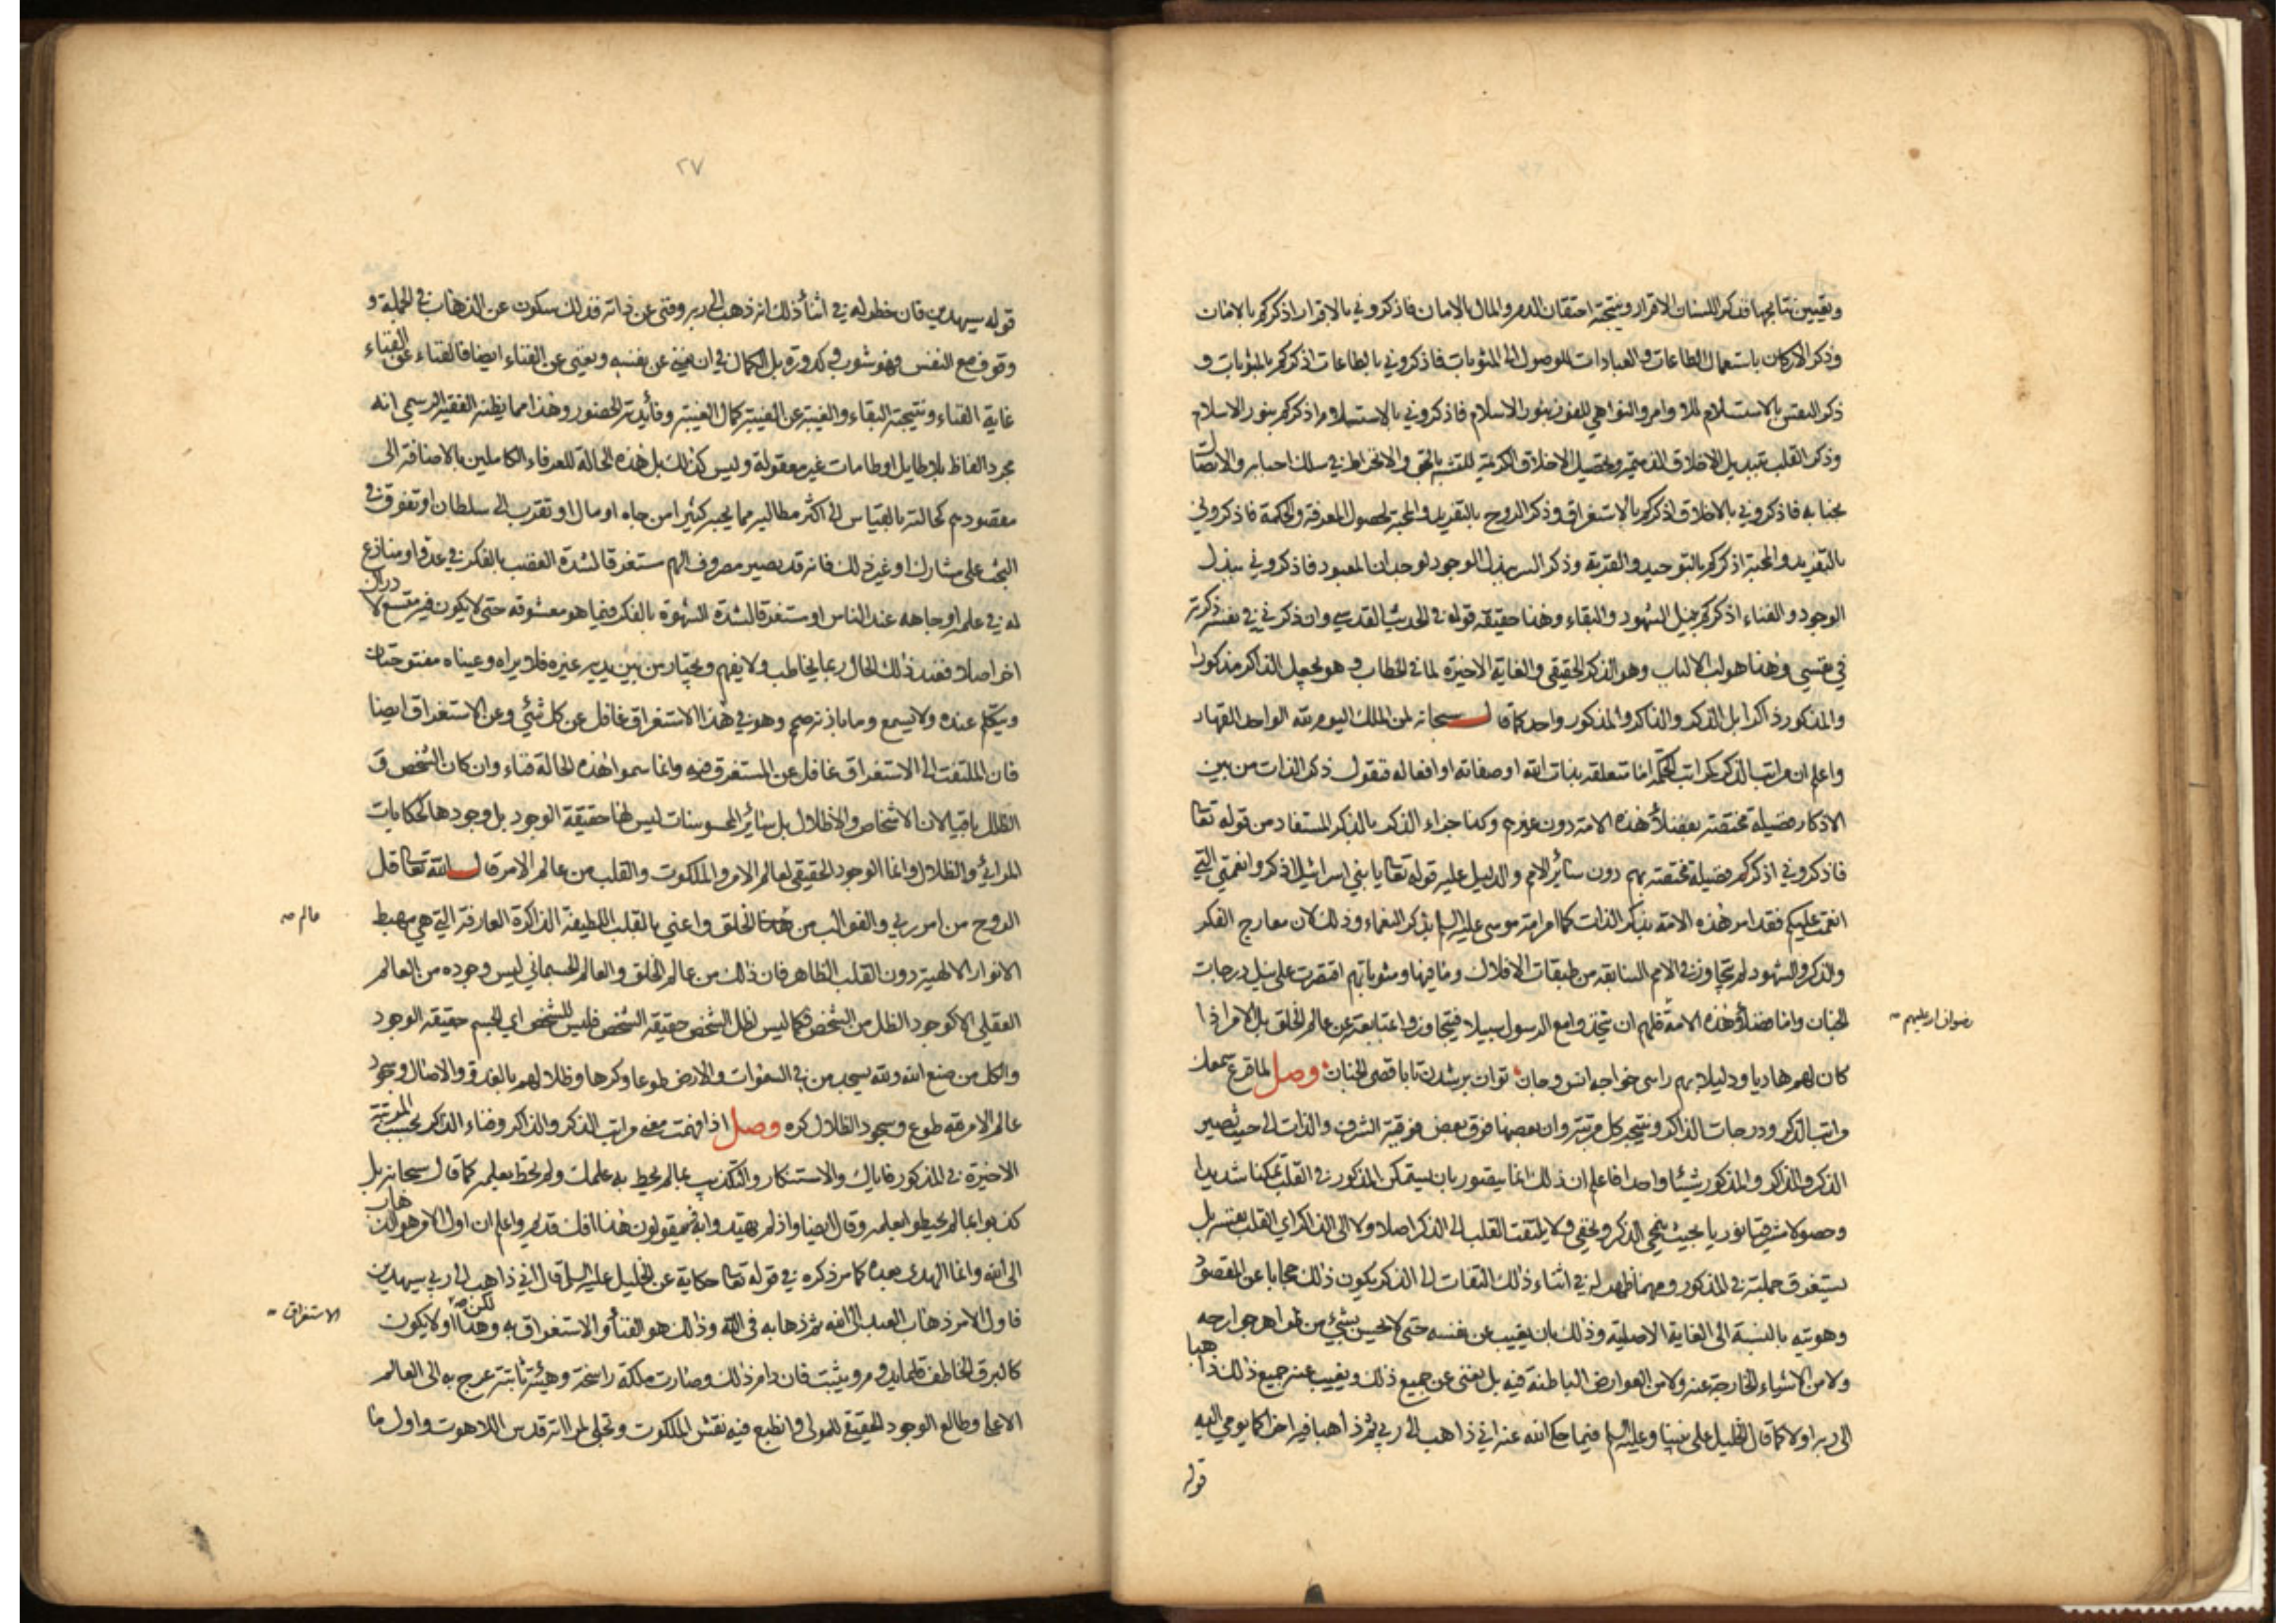 وتعيين نتايجها فذكر اللسان الاقرار ونتيجته احتقان الدم والمال بالامان فاذكروني بالاقرار اذكركم بالامان
وذكر الاركان باستعمال الطاعات والعبادات للوصول الى المثوبات فاذكروني بالطاعات اذكركم بالمثوبات و
ذكر النفس بالاستسلام للاوامر والنواهي للفوز بنور الاسلام فاذكروني بالاستسلام اذكركم بنور الاسلام
وذكر القلب تبديل الاخلاق الذميمة وتحصيل الاخلاق الكريمة للتشبه بالحق والانخراط في سلك احبابه والاتصال
بجنابه فاذكروني بالاخلاق اذكركم بالاستغراق وذكر الروح بالتفريد والمحبة لحصول المعرفة والحكمة فاذكروني
بالتفريد والمحبة اذكركم بالتوحيد والقربة وذكر السر ببذل الوجود لوجدان المعبود فاذكروني ببذل
الوجود والفناء اذكركم بنيل الشهود والبقاء وهذا حقيقة قوله في الحديث القدسي وان ذكرني في نفسه ذكرته
في نفسي وهذا هو لب الالباب وهو الذكر الحقيقي والغاية الاخيرة لما في الخطاب و هو يجعل الذاكر مذكورا
والمذكور ذاكرا بل الذكر والذاكر والمذكور واحد كما قال سبحانه لمن الملك اليوم لله الواحد القهار
واعلم ان مراتب الذكر كمراتب الحكمة اما متعلقه بذات الله او صفاته او افعاله فنقول ذكر الذات من بين
الاذكار فضيلة مختصة بفضلاء هذه الامة دون غيرهم وكذا جزاء الذكر بالذكر المستفاد من قوله تعا
فاذكروني اذكركم فضيلة مختصة بهم دون سائر الامم والدليل عليه قوله تعا يا بني اسرائيل اذكروا نعمتي التي
انعمت عليكم فقد امر هذه الامة بذكر الذات كما امر امة موسى عليه السلم بذكر النعماء وذلك لان معارج الفكر
والذكر والشهود لم تتجاوز في الامم السابقه من طبقات الافلاك وما فيها ومثوباتهم اقتصرت على نيل درجات
الجنان واما فضلاء هذه الامة فلهم ان يتخذوا مع الرسول سبيلا فيتجاوزوا بمتابعته عن عالم الخلق بل الامر اذا
رضوان الله عليهم صه
كان لهم هاديا ودليلا بهم راسى خواجه انس وجان توان برشدن تا باقصى الجنان وصل لما قرع سمعك
مراتب الذكر ودرجات الذاكر ونتيجة كل مرتبة وان بعضها فوق بعض فوقية الشرف والذات الى حيث تصير
الذكر والذاكر والمذكور شيئا واحدا فاعلم ان ذلك انما يتصور بان يتمكن المذكور في القلب تمكنا شديدا
وحصولا شريفا نوريا بحيث ينمحي الذكر ويخفى ولا يلتفت القلب الى الذكر اصلا ولا الى الذاكر اي القلب بنفسه بل
يستغرق جملته في المذكور ومهما ظهر له في اثناء ذلك التفات الى الذكر يكون ذلك حجابا عن المقصود
وهويته بالنسبة الى الغاية الاصلية وذلك بان يغيب عن نفسه حتى لا يحس بشيء من ظواهر جوارحه
ولا من الاشياء الخارجة عنه ولا من العوارض الباطنة فيه بل يفنى عن جميع ذلك ويغيب عنه جميع ذلك ذاهبا
الى ربه اولا كما قال الخليل على نبينا وعليه السلم فيما حكى الله عنه اني ذاهب الى ربي ثم ذاهبا فيه اخرا كما يومي اليه
قوله
٢٧
قوله سيهدين فان خطر له في اثناء ذلك انه ذهب الى ربه وفنى عن ذاته فذلك سكون عن الذهاب في الجملة و
وقوف مع النفس فهو شوب وكدورة بل الكمال في ان يفنى عن نفسه ويفنى عن الفناء ايضا فالفناء عن الفناء
غاية الفناء ونتيجة البقاء والغيبة عن الغيبة كمال الغيبة وفائدته الحضور وهذا مما يظنه الفقيه الرسمي انه
مجرد الفاظ بلا طايل او طامات غير معقولة وليس كذلك بل هذه الحالة للعرفاء الكاملين بالاضافة الى
مقصودهم كحالته بالقياس الى اكثر مطالبه مما يحبه كثيرا من جاه او مال او تقرب الى سلطان او تفوق في
البحث على مشارك او غير ذلك فانه قد يصير مصروف الهم مستغرقا لشدة الغضب بالفكر في عدو او منازع
له في علمه او جاهه عند الناس او مستغرقا لشدة الشهوة بالفكر فيما هو معشوقه حتى لا يكون فيه متسع لادراك
اخر اصلا فعند ذلك الحال ربما يخاطب ولا يفهم ويجتاز من بين يديه غيره فلا يراه وعيناه مفتوحتان
ويتكلم عنده ولا يسمع وما باذنه صمم وهو في هذا الاستغراق غافل عن كل شئي وعن الاستغراق ايضا
فان الملتفت الى الاستغراق غافل عن المستغرق فيه وانما سموا هذه الحالة فناء وان كان الشخص و
الظل باقيا لان الاشخاص والاظلال بل سائر المحسوسات ليس لها حقيقة الوجود بل وجودها كحكايات
المرائي والظلال وانما الوجود الحقيقي لعالم الامر والملكوت والقلب من عالم الامر قال الله تعا قل
الروح من امر ربي والقوالب من الخلق واعني بالقلب اللطيفة الذاكرة العارفة التي هي مهبط
عالم صه
الانوار الالهية دون القلب الظاهر فان ذلك من عالم الخلق والعالم الجسماني ليس وجوده من العالم
العقلي الا كوجود الظل من الشخص فكما ليس لظل الشخص حقيقة الشخص فليس للشخص اي الجسم حقيقة الوجود
والكل من صنع الله ولله يسجد من في السموات والارض طوعا وكرها وظلالهم بالغدو والاصال وسجود
عالم الامر له طوع وسجود الظلال كره وصل اذا فهمت معنى مراتب الذكر والذاكر وفناء الذاكر بحسب المرتبة
الاخيرة في المذكور فاياك والاستنكار والتكذيب بما لم يحط به علمك ولم تحط بعلمه كما قال سبحانه بل
كذبوا بما لم يحيطوا بعلمه وقال ايضا واذ لم يهتدوا به فسيقولون هذا افك قديم واعلم ان اول الامر هو الذهاب
الى الله وانما الهدى بعده كما مر ذكره في قوله تعا حكاية عن الخليل عليه السلم قال اني ذاهب الى ربي سيهدين
فاول الامر ذهاب العبد الى الله ثم ذهابه في الله وذلك هو الفناء والاستغراق به وهذا لكن اولا يكون
الاستغراق صه
كالبرق الخاطف قلما يدوم ويثبت فان دام ذلك وصارت ملكة راسخة وهيئة ثابتة عرج به الى العالم
الاعلى وطالع الوجود الحقيقي للمولى وانطبع فيه نقش الملكوت وتجلى له قدس اللاهوت واول ما